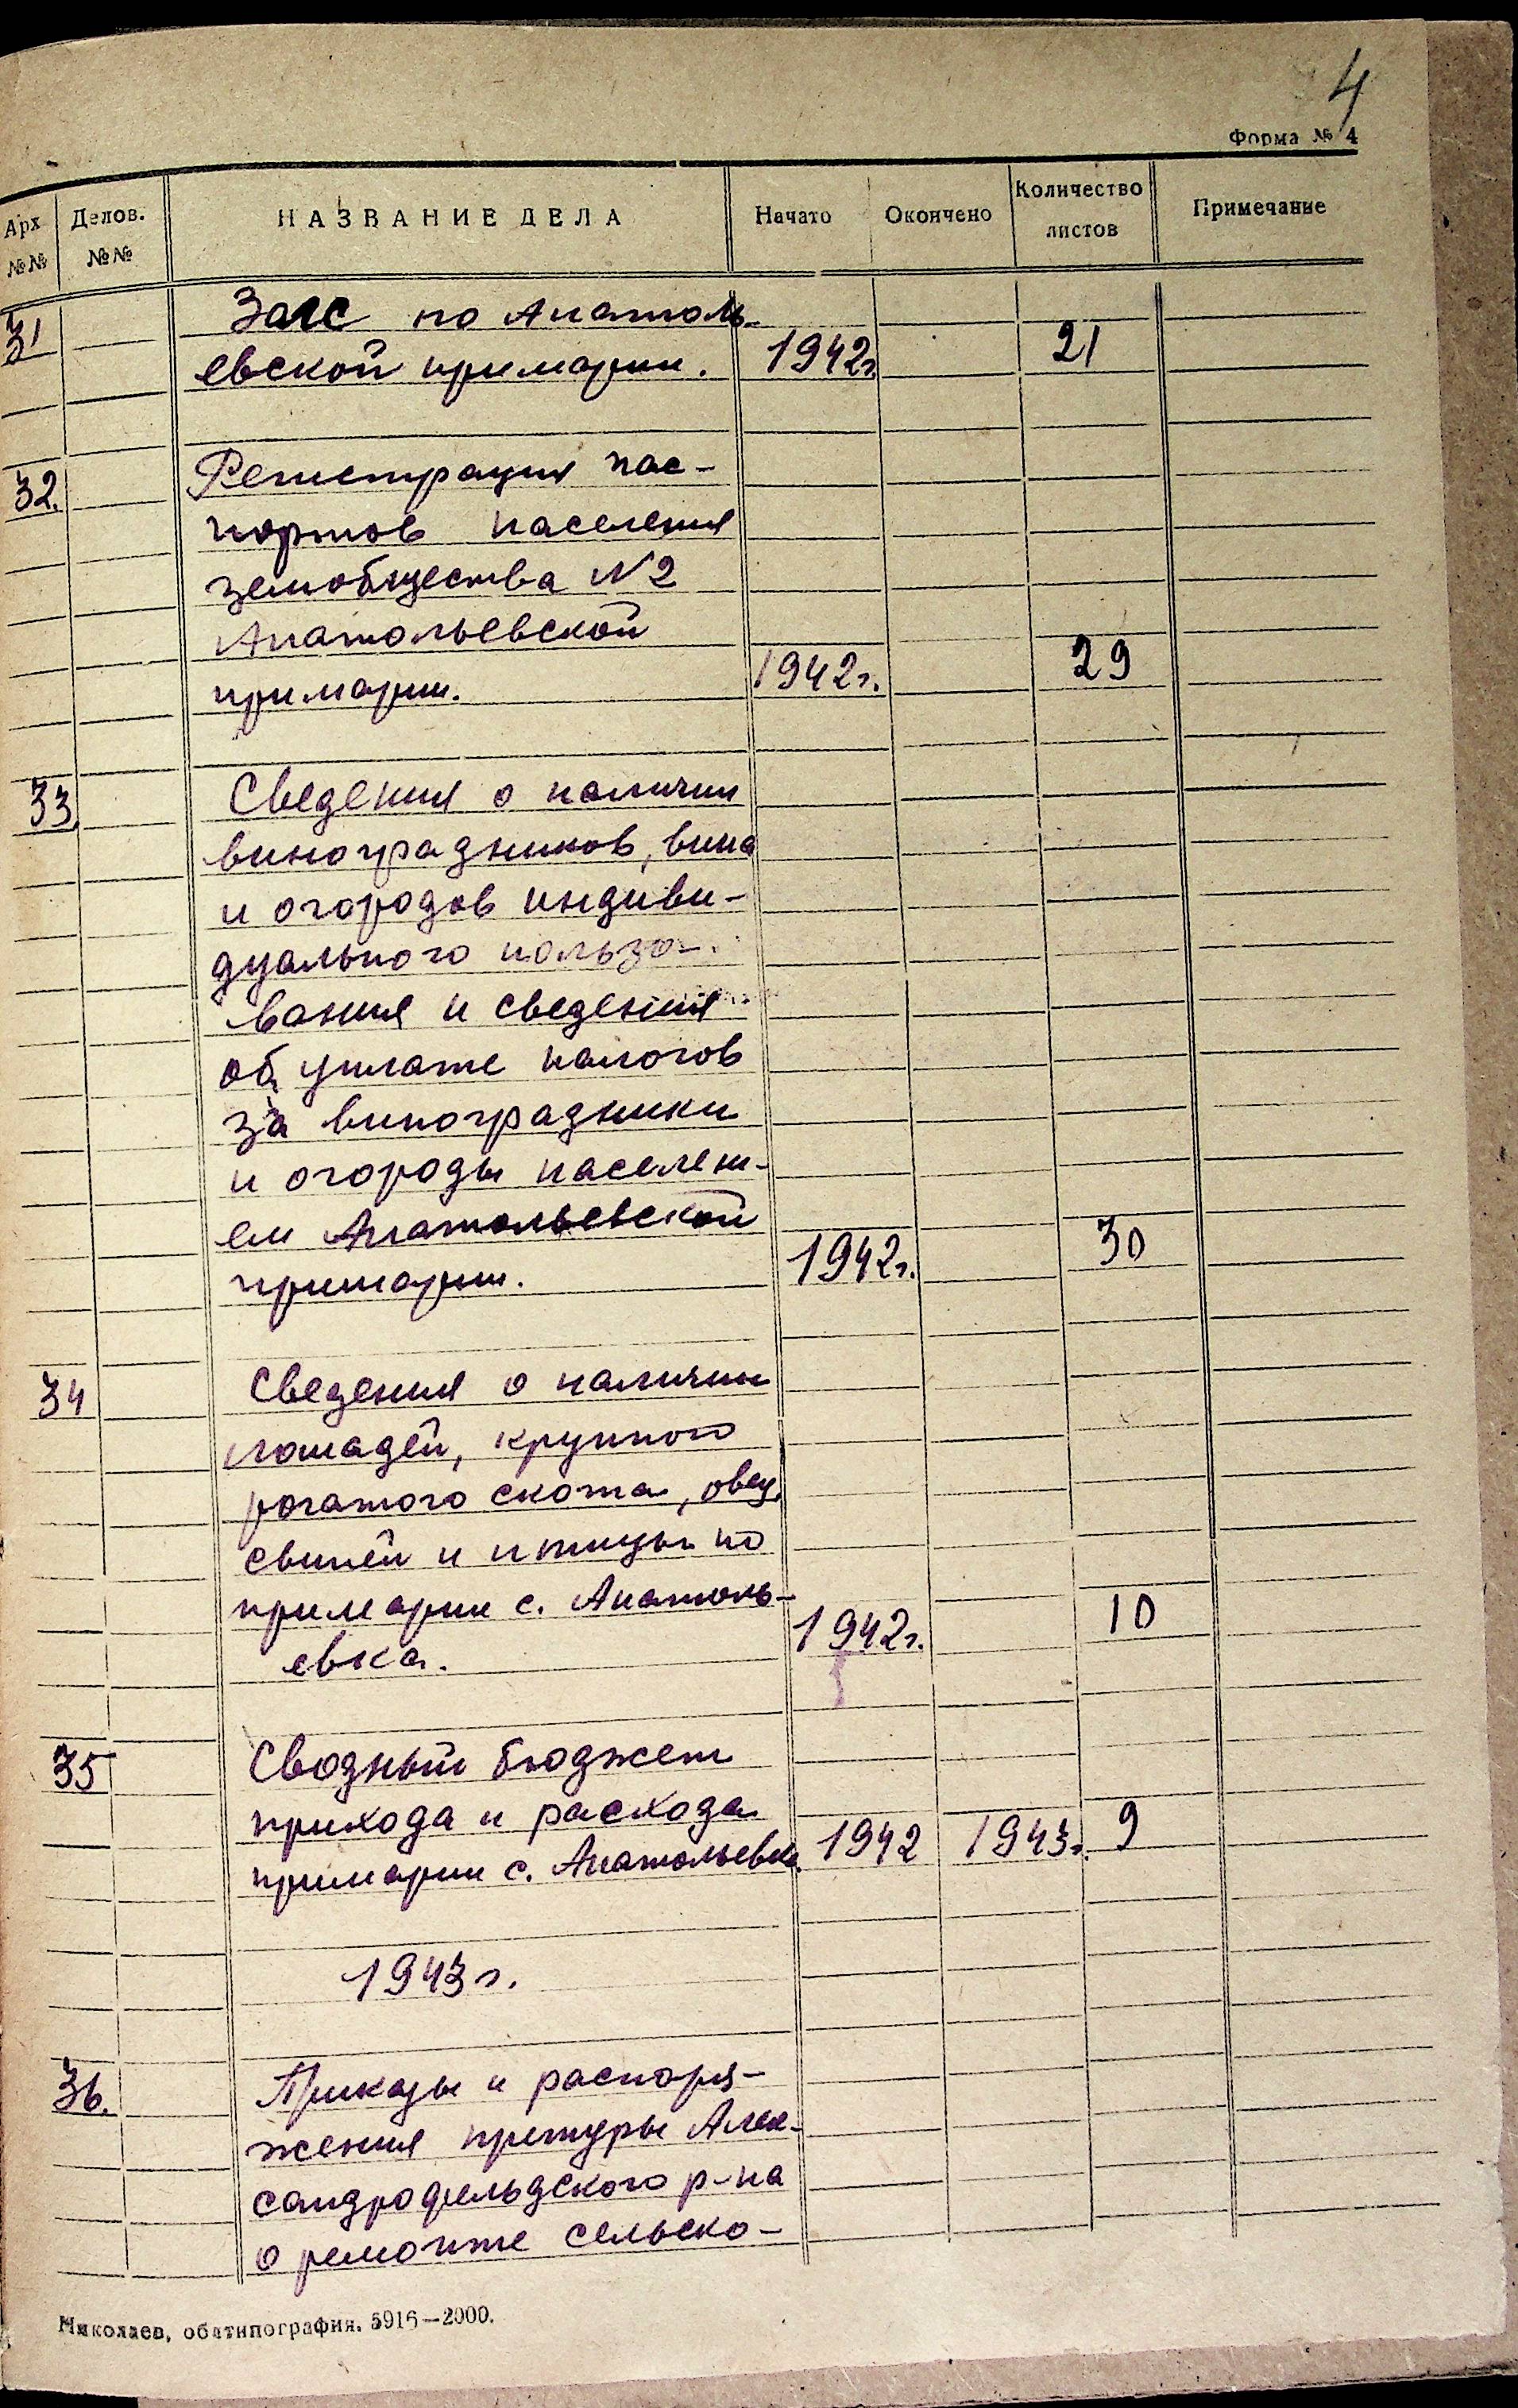 4
Форма № 4
Арх №№ Делов. №№ НАЗВАНИЕ ДЕЛА Начато Окончено Количество листов Примечание
31 Загс по Анатоль-
евской примарии. 1942г. 21
32. Регистрация пас-
портов населения
земобщества N2
Анатольевской
примарии. 1942г. 29
33. Сведения о наличии
виноградников, вина
и огородов индиви-
дуального пользо-
вания и сведения
об уплате налогов
за виноградники
и огороды населени-
ем Анатольевской
примарии. 1942г. 30
34 Сведения о наличии
лошадей, крупного
рогатого скота, овец,
свиней и птицы по
примарии с. Анатоль-
евка. 1942г. 10
35 Сводный бюджет
прихода и расхода
примарии с. Анатольевка. 1942 1943г. 9
1943г.
36. Приказы и распоря-
жения претуры Алек-
сандрофельдского р-на
о ремонте сельско-
Николаев, обатипография. 5916—2000.